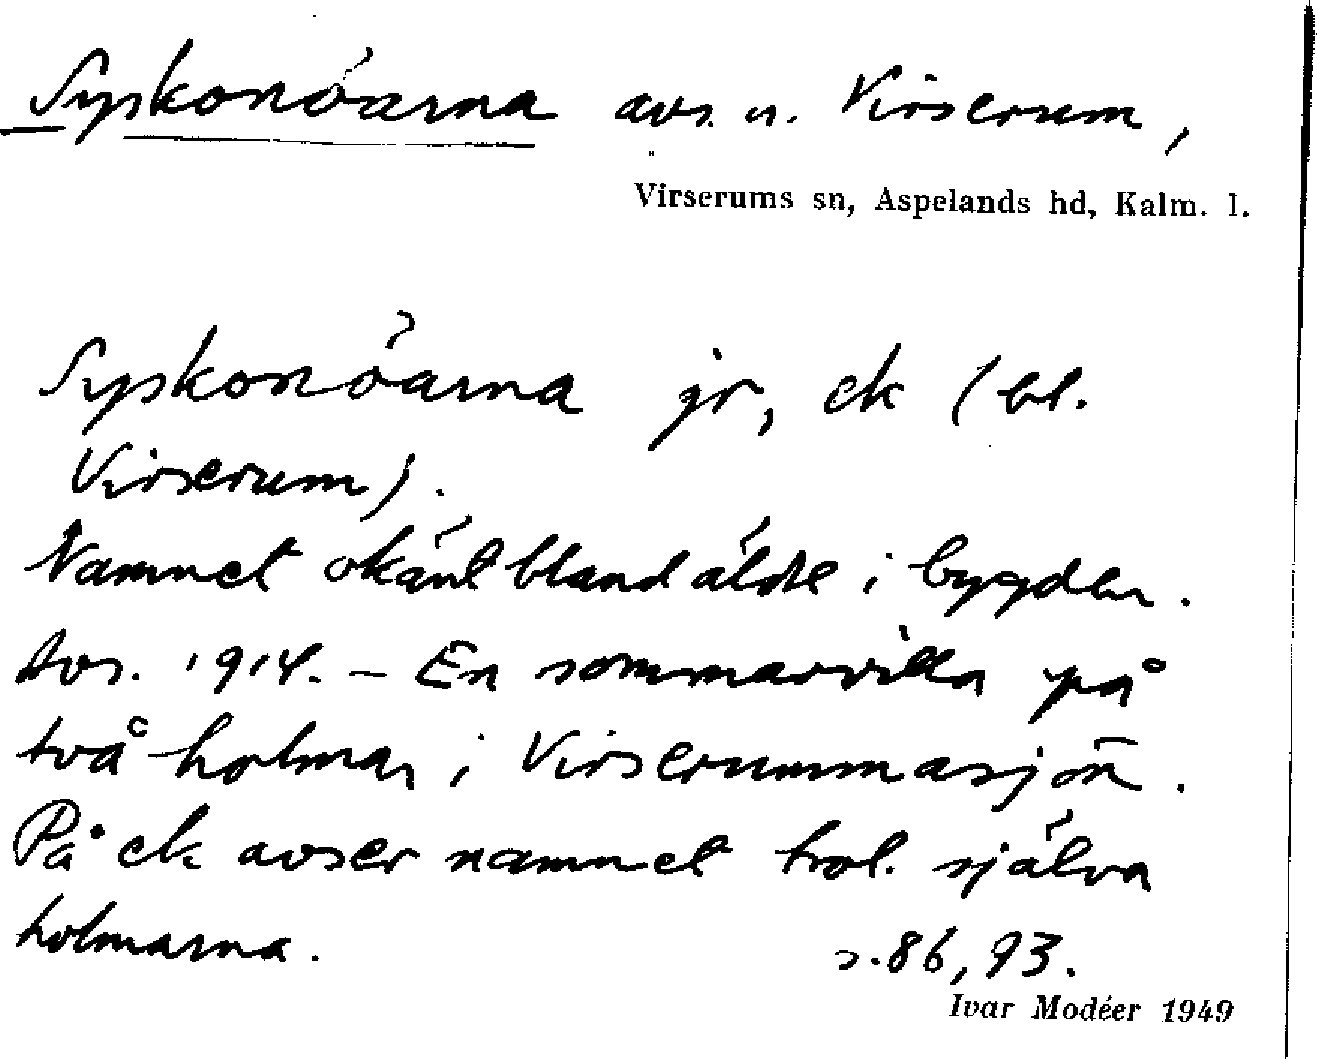 Syskonöarna avs. u. Virserum,
Virserums sn, Aspelands hd, Kalm. l.
Syskonöarna jr, ek (bl.
Virserum).
Namnet okänt bland äldre i bygden.
Avs. 1914. – En sommarvilla på
två holmar i Virserummasjön.
På ek avser namnet trol. själva
holmarna.
s. 86, 93.
Ivar Modéer 1949